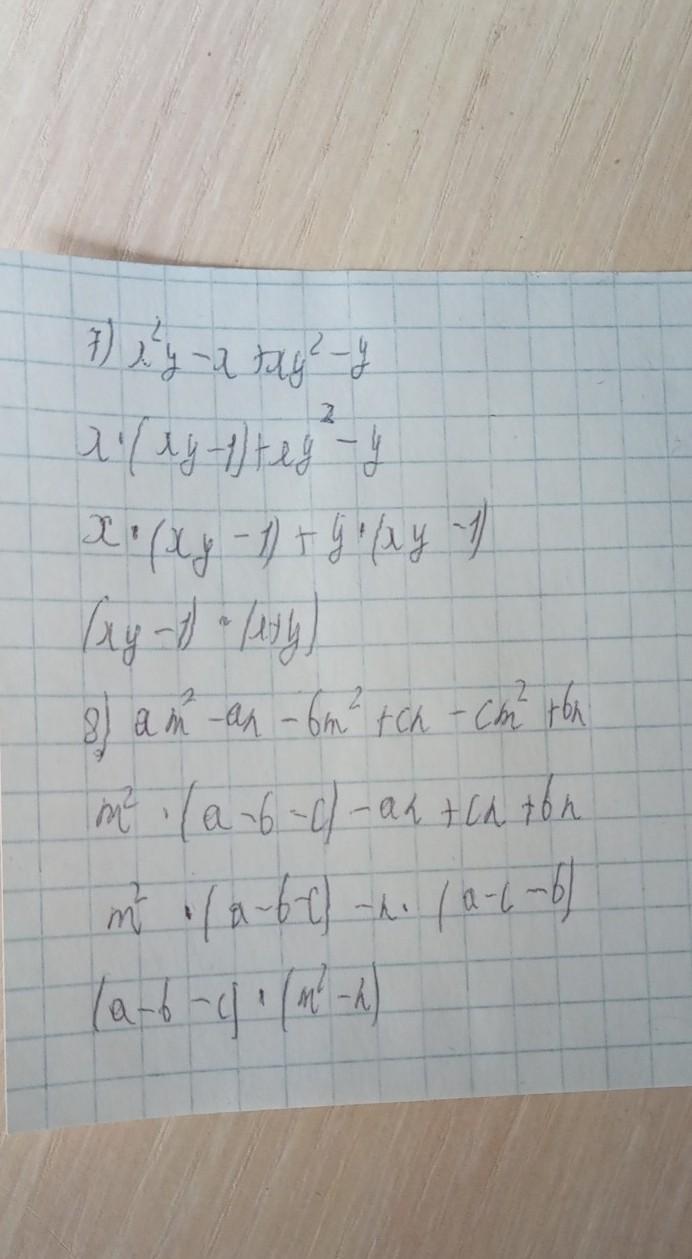 7) x²y - x + xy² - y
x·(xy-1)+xy² - y
x·(xy - 1) + y·(xy - 1)
(xy - 1)·(x+y)
8) am² - an - bm² + cn - cm² + bn
m²·(a-b-c) - an + cn + bn
m²·(a-b-c) - n·(a-c-b)
(a-b-c)·(m²-n)